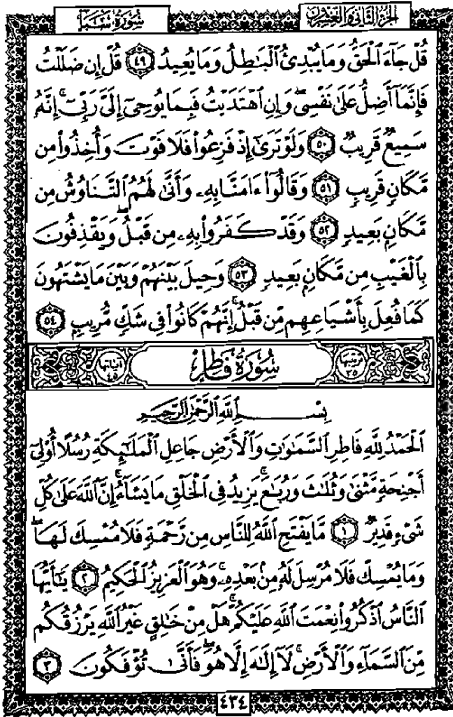 الجزء الثاني والعشرون
سورة سبإ
قُلْ جَآءَ ٱلْحَقُّ وَمَا يُبْدِئُ ٱلْبَٰطِلُ وَمَا يُعِيدُ ٤٩ قُلْ إِن ضَلَلْتُ
فَإِنَّمَآ أَضِلُّ عَلَىٰ نَفْسِى وَإِنِ ٱهْتَدَيْتُ فَبِمَا يُوحِىٓ إِلَىَّ رَبِّىٓ إِنَّهُۥ
سَمِيعٌ قَرِيبٌ ٥٠ وَلَوْ تَرَىٰٓ إِذْ فَزِعُوا۟ فَلَا فَوْتَ وَأُخِذُوا۟ مِن
مَّكَانٍ قَرِيبٍ ٥١ وَقَالُوٓا۟ ءَامَنَّا بِهِۦ وَأَنَّىٰ لَهُمُ ٱلتَّنَاوُشُ مِن
مَّكَانٍۭ بَعِيدٍ ٥٢ وَقَدْ كَفَرُوا۟ بِهِۦ مِن قَبْلُ وَيَقْذِفُونَ
بِٱلْغَيْبِ مِن مَّكَانٍۭ بَعِيدٍ ٥٣ وَحِيلَ بَيْنَهُمْ وَبَيْنَ مَا يَشْتَهُونَ
كَمَا فُعِلَ بِأَشْيَاعِهِم مِّن قَبْلُ إِنَّهُمْ كَانُوا۟ فِى شَكٍّ مُّرِيبٍۭ ٥٤
ترتيبها ٣٥ سُورَةُ فَاطِرٍ آياتها ٤٥
بِسْمِ ٱللَّهِ ٱلرَّحْمَٰنِ ٱلرَّحِيمِ
ٱلْحَمْدُ لِلَّهِ فَاطِرِ ٱلسَّمَٰوَٰتِ وَٱلْأَرْضِ جَاعِلِ ٱلْمَلَٰٓئِكَةِ رُسُلًا أُو۟لِىٓ
أَجْنِحَةٍ مَّثْنَىٰ وَثُلَٰثَ وَرُبَٰعَ يَزِيدُ فِى ٱلْخَلْقِ مَا يَشَآءُ إِنَّ ٱللَّهَ عَلَىٰ كُلِّ
شَىْءٍ قَدِيرٌ ١ مَّا يَفْتَحِ ٱللَّهُ لِلنَّاسِ مِن رَّحْمَةٍ فَلَا مُمْسِكَ لَهَا
وَمَا يُمْسِكْ فَلَا مُرْسِلَ لَهُۥ مِنۢ بَعْدِهِۦ وَهُوَ ٱلْعَزِيزُ ٱلْحَكِيمُ ٢ يَٰٓأَيُّهَا
ٱلنَّاسُ ٱذْكُرُوا۟ نِعْمَتَ ٱللَّهِ عَلَيْكُمْ هَلْ مِنْ خَٰلِقٍ غَيْرُ ٱللَّهِ يَرْزُقُكُم
مِّنَ ٱلسَّمَآءِ وَٱلْأَرْضِ لَآ إِلَٰهَ إِلَّا هُوَ فَأَنَّىٰ تُؤْفَكُونَ ٣
٤٣٤